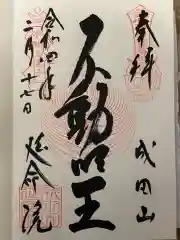 奉拝
成田山
不動明王
令和四年
二月十七日
延命院